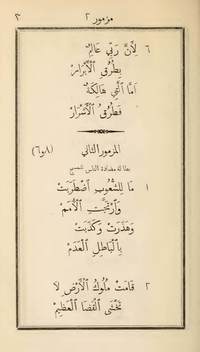 مزمور ٢ ٣
٦ لِأَنَّ رَبِّي عَالِمٌ
بِطُرُقِ ٱلْأَبْرَارْ
اَمَّا ٱلَّتِي هَالِكَةٌ
فَطُرْقُ ٱلْأَشْرَارْ
المزمور الثاني (٨و٦)
مضادة الناس للمسيح
١ مَا لِلشُّعُوبِ ٱضْطَرَبَتْ
وَٱرْتَجَّتِ ٱلْأُمَمْ
وَهَذَرَتْ وَكَذَّبَتْ
بِٱلْبَاطِلِ ٱلْعَدَمْ
٢ قَامَتْ مُلُوكُ ٱلْأَرْضِ لَا
تَخْشَى ٱلْقَضَا ٱلْعَظِيمْ